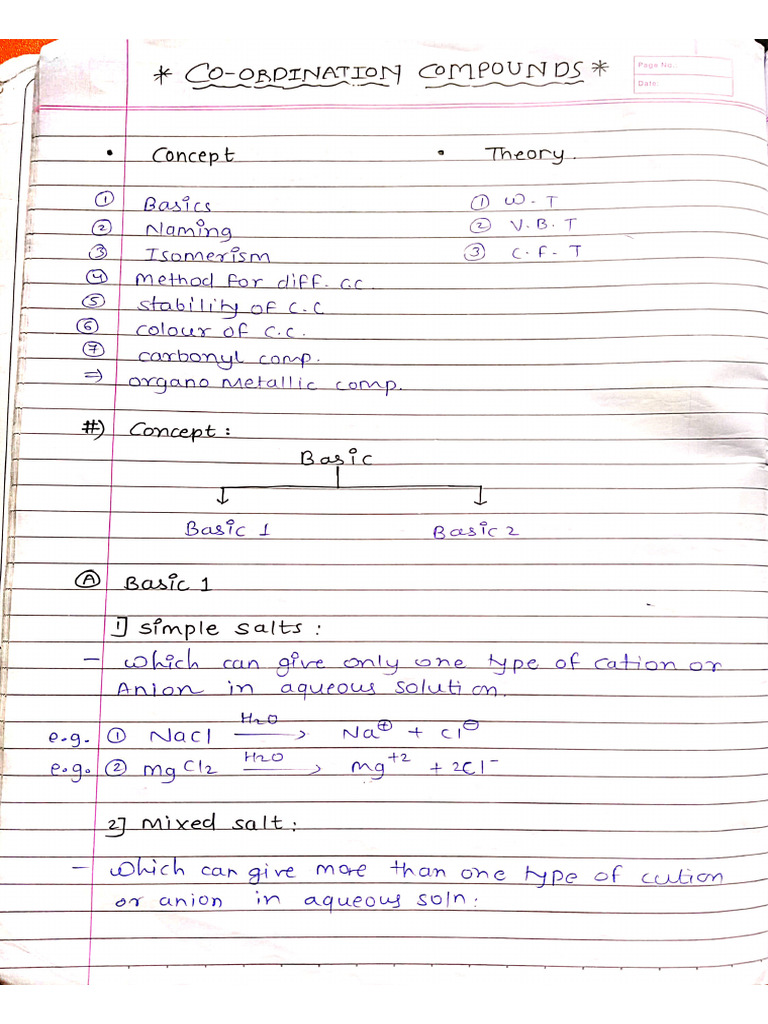 * CO-ORDINATION COMPOUNDS *
Page No.:
Date:
• Concept • Theory.
① Basics ① W.T
② Naming ② V.B.T
③ Isomerism ③ C.F.T
④ Method for diff. C.C.
⑤ stability of C.C
⑥ colour of C.C.
⑦ carbonyl comp.
⇒ organo metallic comp.
#) Concept :
Basic
Basic 1 Basic 2
Ⓐ Basic 1
1] simple salts :
- which can give only one type of cation or
Anion in aqueous solution.
e.g. ① NaCl H2O → Na⊕ + Cl⊖
e.g. ② MgCl2 H2O → Mg+2 + 2Cl-
2] Mixed salt :
- which can give more than one type of cution
or anion in aqueous soln :